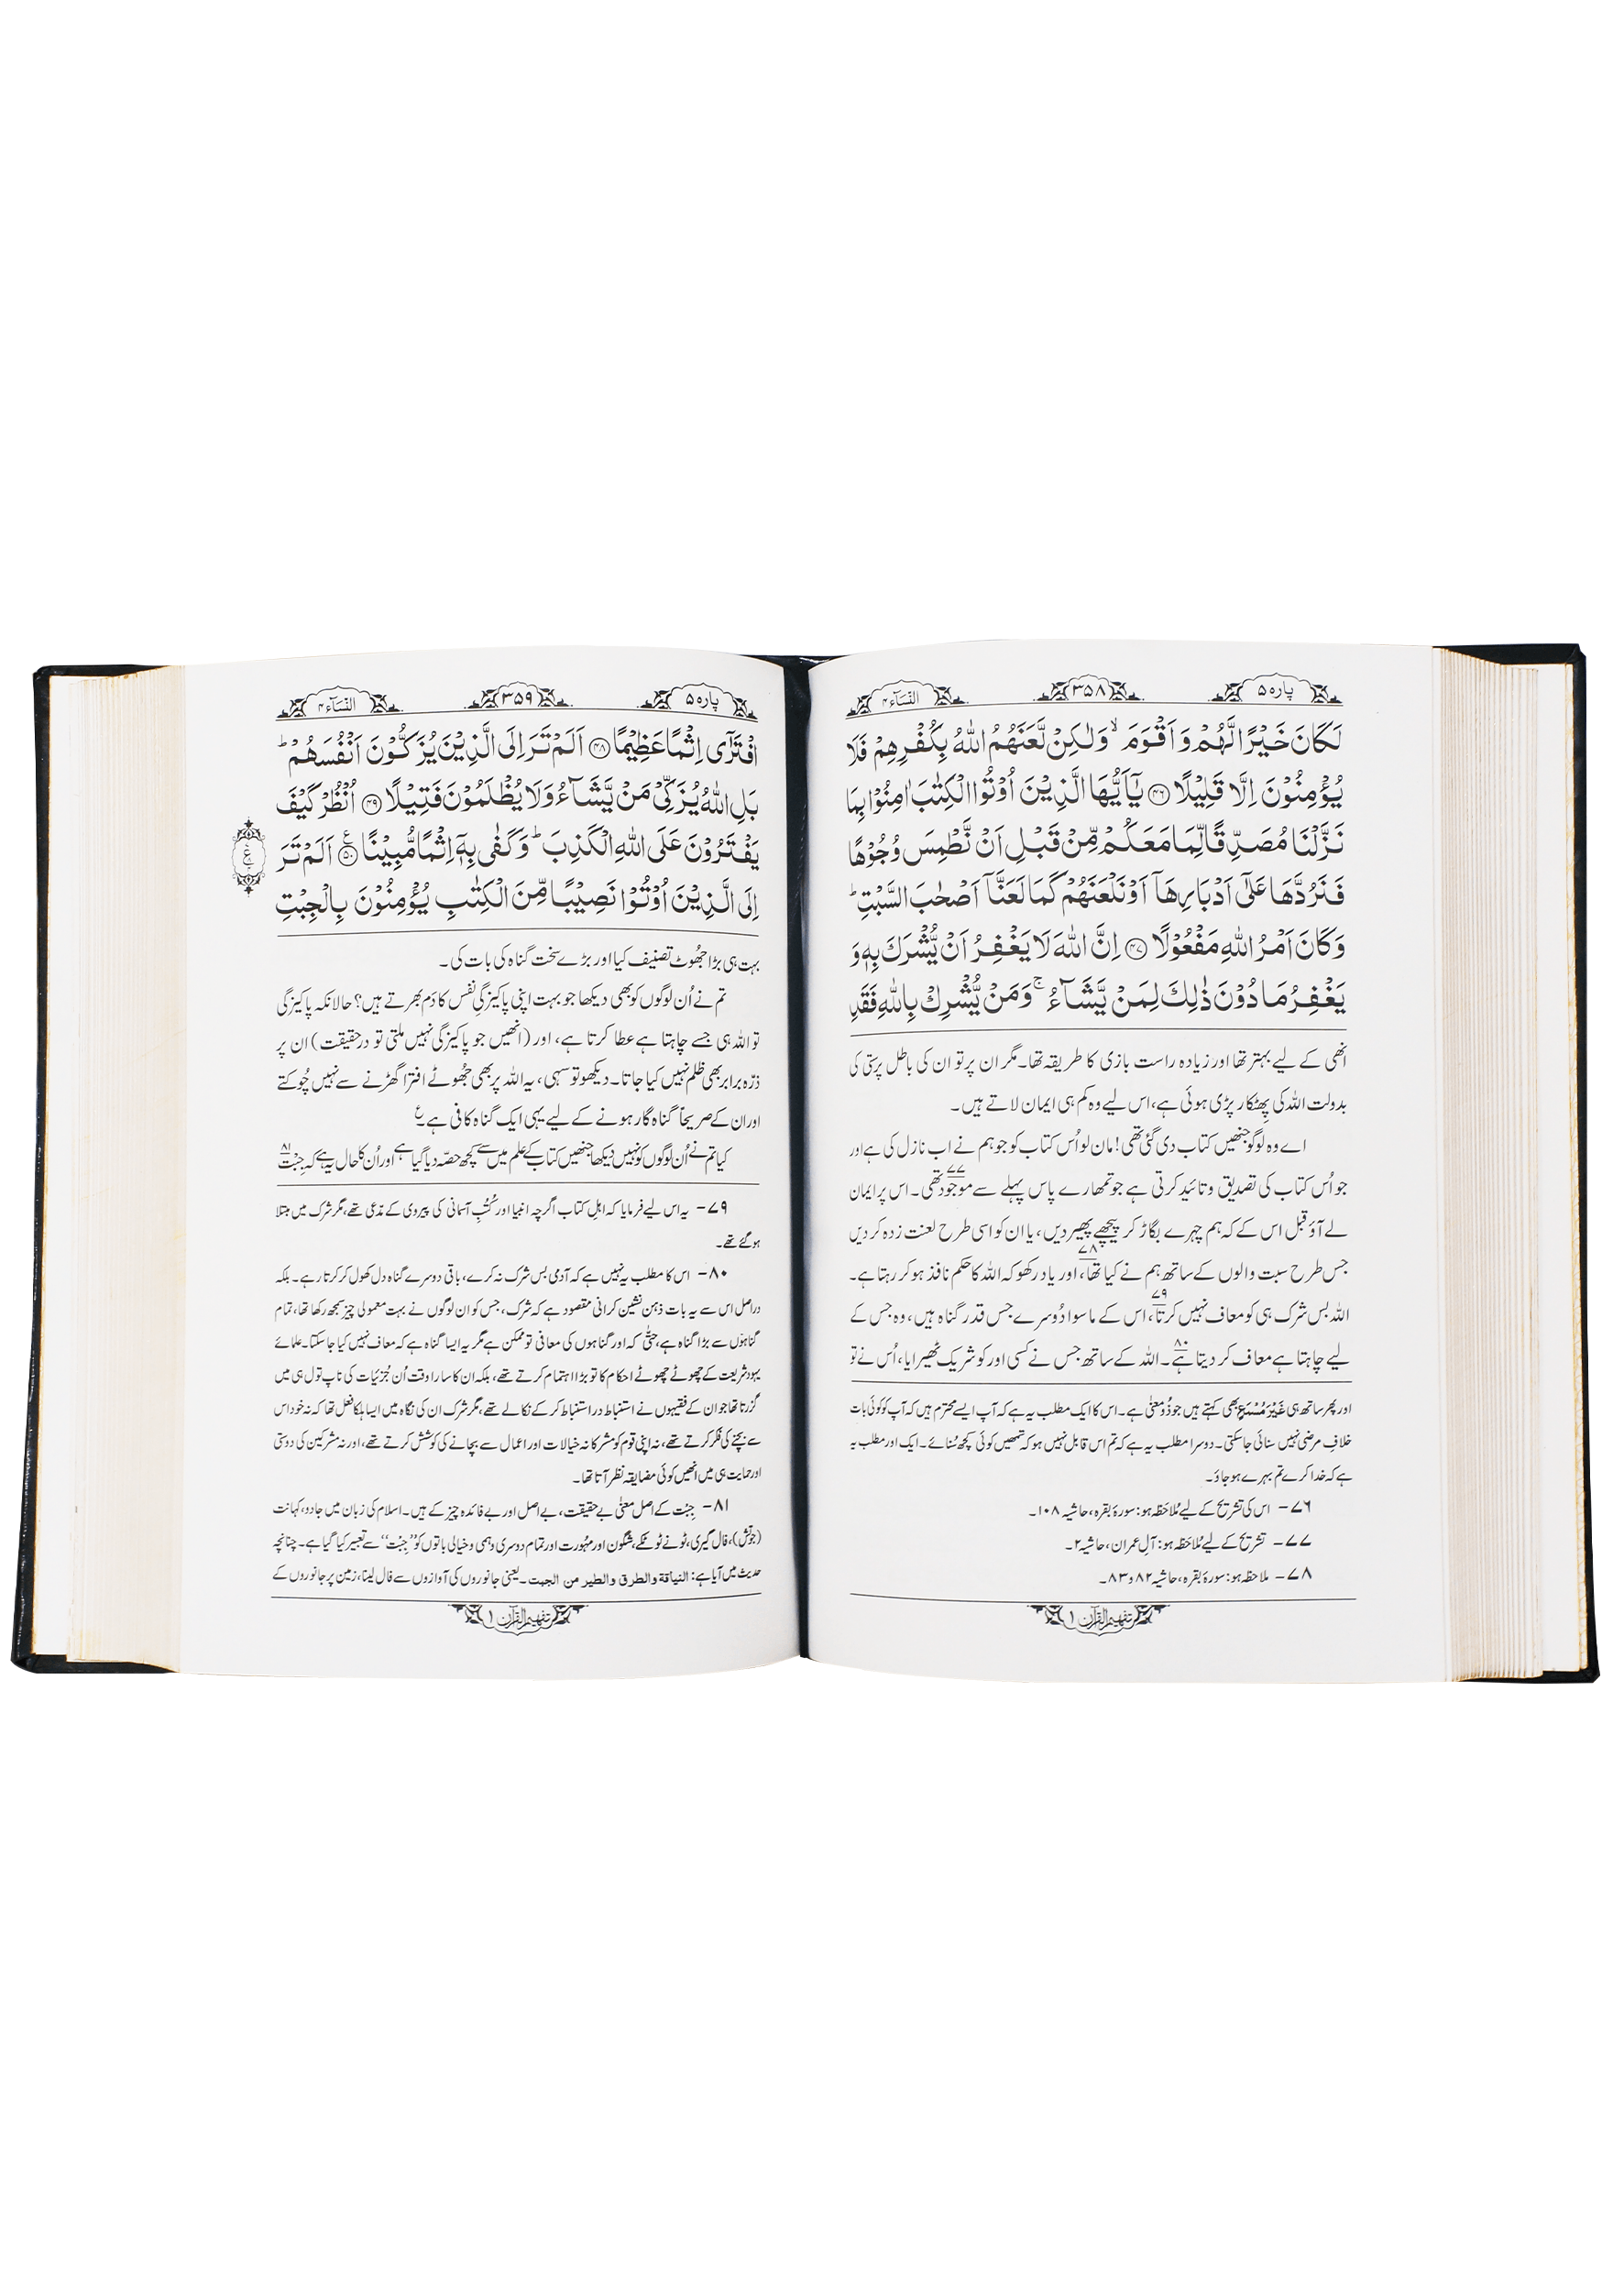 پارہ ۵
۳۵۸
النّسَآء ۴
لَكَانَ خَيْرًا لَّهُمْ وَاَقْوَمَ ۙ وَلٰكِنْ لَّعَنَهُمُ اللّٰهُ بِكُفْرِهِمْ فَلَا
يُؤْمِنُوْنَ اِلَّا قَلِيْلًا ﴿۴۶﴾ يٰۤاَيُّهَا الَّذِيْنَ اُوْتُوا الْكِتٰبَ اٰمِنُوْا بِمَا
نَزَّلْنَا مُصَدِّقًا لِّمَا مَعَكُمْ مِّنْ قَبْلِ اَنْ نَّطْمِسَ وُجُوْهًا
فَنَرُدَّهَا عَلٰۤى اَدْبَارِهَاۤ اَوْ نَلْعَنَهُمْ كَمَا لَعَنَّاۤ اَصْحٰبَ السَّبْتِ ؕ
وَكَانَ اَمْرُ اللّٰهِ مَفْعُوْلًا ﴿۴۷﴾ اِنَّ اللّٰهَ لَا يَغْفِرُ اَنْ يُّشْرَكَ بِهٖ وَ
يَغْفِرُ مَا دُوْنَ ذٰلِكَ لِمَنْ يَّشَآءُ ۚ وَمَنْ يُّشْرِكْ بِاللّٰهِ فَقَدِ
انھی کے لیے بہتر تھا اور زیادہ راست بازی کا طریقہ تھا۔ مگر ان پر تو ان کی باطل پرستی کی
بدولت اللہ کی پھٹکار پڑی ہوئی ہے، اس لیے وہ کم ہی ایمان لاتے ہیں۔
اے وہ لوگو جنھیں کتاب دی گئی تھی! مان لو اُس کتاب کو جو ہم نے اب نازل کی ہے اور
جو اُس کتاب کی تصدیق و تائید کرتی ہے جو تمھارے پاس پہلے سے موجود تھی۷۷۔ اس پر ایمان
لے آؤ قبل اس کے کہ ہم چہرے بگاڑ کر پیچھے پھیر دیں، یا ان کو اسی طرح لعنت زدہ کر دیں
جس طرح سبت والوں کے ساتھ ہم نے کیا تھا۷۸، اور یاد رکھو کہ اللہ کا حکم نافذ ہو کر رہتا ہے۔
اللہ بس شرک ہی کو معاف نہیں کرتا۷۹، اس کے ماسوا دُوسرے جس قدر گناہ ہیں، وہ جس کے
لیے چاہتا ہے معاف کر دیتا ہے۸۰۔ اللہ کے ساتھ جس نے کسی اور کو شریک ٹھیرایا، اُس نے تو
اور پھر ساتھ ہی غَیْرَ مُسْمَعٍ بھی کہتے ہیں جو ذُو معنٰی ہے۔ اس کا ایک مطلب یہ ہے کہ آپ ایسے محترم ہیں کہ آپ کو کوئی بات
خلافِ مرضی نہیں سنائی جاسکتی۔ دوسرا مطلب یہ ہے کہ تم اس قابل نہیں ہو کہ تمھیں کوئی کچھ سُنائے۔ ایک اور مطلب یہ
ہے کہ خدا کرے تم بہرے ہو جاؤ۔
۷۶– اس کی تشریح کے لیے مُلاحَظہ ہو: سورۂ بقرہ، حاشیہ ۱۰۸۔
۷۷– تشریح کے لیے مُلاحَظہ ہو: آلِ عمران، حاشیہ ۲۔
۷۸– ملاحظہ ہو: سورۂ بقرہ، حاشیہ ۸۲ و ۸۳۔
تفہیم القرآن ۱
پارہ ۵
۳۵۹
النّسَآء ۴
افْتَرٰۤى اِثْمًا عَظِيْمًا ﴿۴۸﴾ اَلَمْ تَرَ اِلَى الَّذِيْنَ يُزَكُّوْنَ اَنْفُسَهُمْ ؕ
بَلِ اللّٰهُ يُزَكِّيْ مَنْ يَّشَآءُ وَلَا يُظْلَمُوْنَ فَتِيْلًا ﴿۴۹﴾ اُنْظُرْ كَيْفَ
يَفْتَرُوْنَ عَلَى اللّٰهِ الْكَذِبَ ؕ وَكَفٰى بِهٖۤ اِثْمًا مُّبِيْنًا ﴿۵۰﴾ اَلَمْ تَرَ
اِلَى الَّذِيْنَ اُوْتُوْا نَصِيْبًا مِّنَ الْكِتٰبِ يُؤْمِنُوْنَ بِالْجِبْتِ
بہت ہی بڑا جھُوٹ تصنیف کیا اور بڑے سخت گناہ کی بات کی۔
تم نے اُن لوگوں کو بھی دیکھا جو بہت اپنی پاکیزگیِ نفس کا دَم بھرتے ہیں؟ حالانکہ پاکیزگی
تو اللہ ہی جسے چاہتا ہے عطا کرتا ہے، اور (انھیں جو پاکیزگی نہیں ملتی تو درحقیقت) ان پر
ذرّہ برابر بھی ظلم نہیں کیا جاتا۔ دیکھو تو سہی، یہ اللہ پر بھی جھُوٹے افترا گھڑنے سے نہیں چُوکتے
اور ان کے صریحاً گناہ گار ہونے کے لیے یہی ایک گناہ کافی ہے۔ؑ
کیا تم نے اُن لوگوں کو نہیں دیکھا جنھیں کتاب کے علم میں سے کچھ حصّہ دیا گیا ہے اور اُن کا حال یہ ہے کہ جِبْت۸۱
۷۹– یہ اس لیے فرمایا کہ اہلِ کتاب اگرچہ انبیا اور کُتُبِ آسمانی کی پیروی کے مدّعی تھے، مگر شرک میں مبتلا
ہو گئے تھے۔
۸۰– اس کا مطلب یہ نہیں ہے کہ آدمی بس شرک نہ کرے، باقی دوسرے گناہ دل کھول کر کرتا رہے۔ بلکہ
دراصل اس سے یہ بات ذہن نشین کرانی مقصود ہے کہ شرک، جس کو ان لوگوں نے بہت معمولی چیز سمجھ رکھا تھا، تمام
گناہوں سے بڑا گناہ ہے، حتّٰی کہ اور گناہوں کی معافی تو ممکن ہے مگر یہ ایسا گناہ ہے کہ معاف نہیں کیا جاسکتا۔ علمائے
یہود شریعت کے چھوٹے چھوٹے احکام کا تو بڑا اہتمام کرتے تھے، بلکہ ان کا سارا وقت اُن جُزئیات کی ناپ تول ہی میں
گزرتا تھا جو ان کے فقیہوں نے استنباط در استنباط کر کے نکالے تھے، مگر شرک ان کی نگاہ میں ایسا ہلکا فعل تھا کہ نہ خود اس
سے بچنے کی فکر کرتے تھے، نہ اپنی قوم کو مشرکانہ خیالات اور اعمال سے بچانے کی کوشش کرتے تھے، اور نہ مشرکین کی دوستی
اور حمایت ہی میں انھیں کوئی مضایقہ نظر آتا تھا۔
۸۱– جِبْت کے اصل معنٰی بے حقیقت، بے اصل اور بے فائدہ چیز کے ہیں۔ اسلام کی زبان میں جادو، کہانت
(جوتش)، فال گیری، ٹونے ٹوٹکے، شگون اور مہُورت اور تمام دوسری وہمی و خیالی باتوں کو ”جِبْت“ سے تعبیر کیا گیا ہے۔ چنانچہ
حدیث میں آیا ہے: النیاقة والطرق والطیر من الجبت۔ یعنی جانوروں کی آوازوں سے فال لینا، زمین پر جانوروں کے
تفہیم القرآن ۱